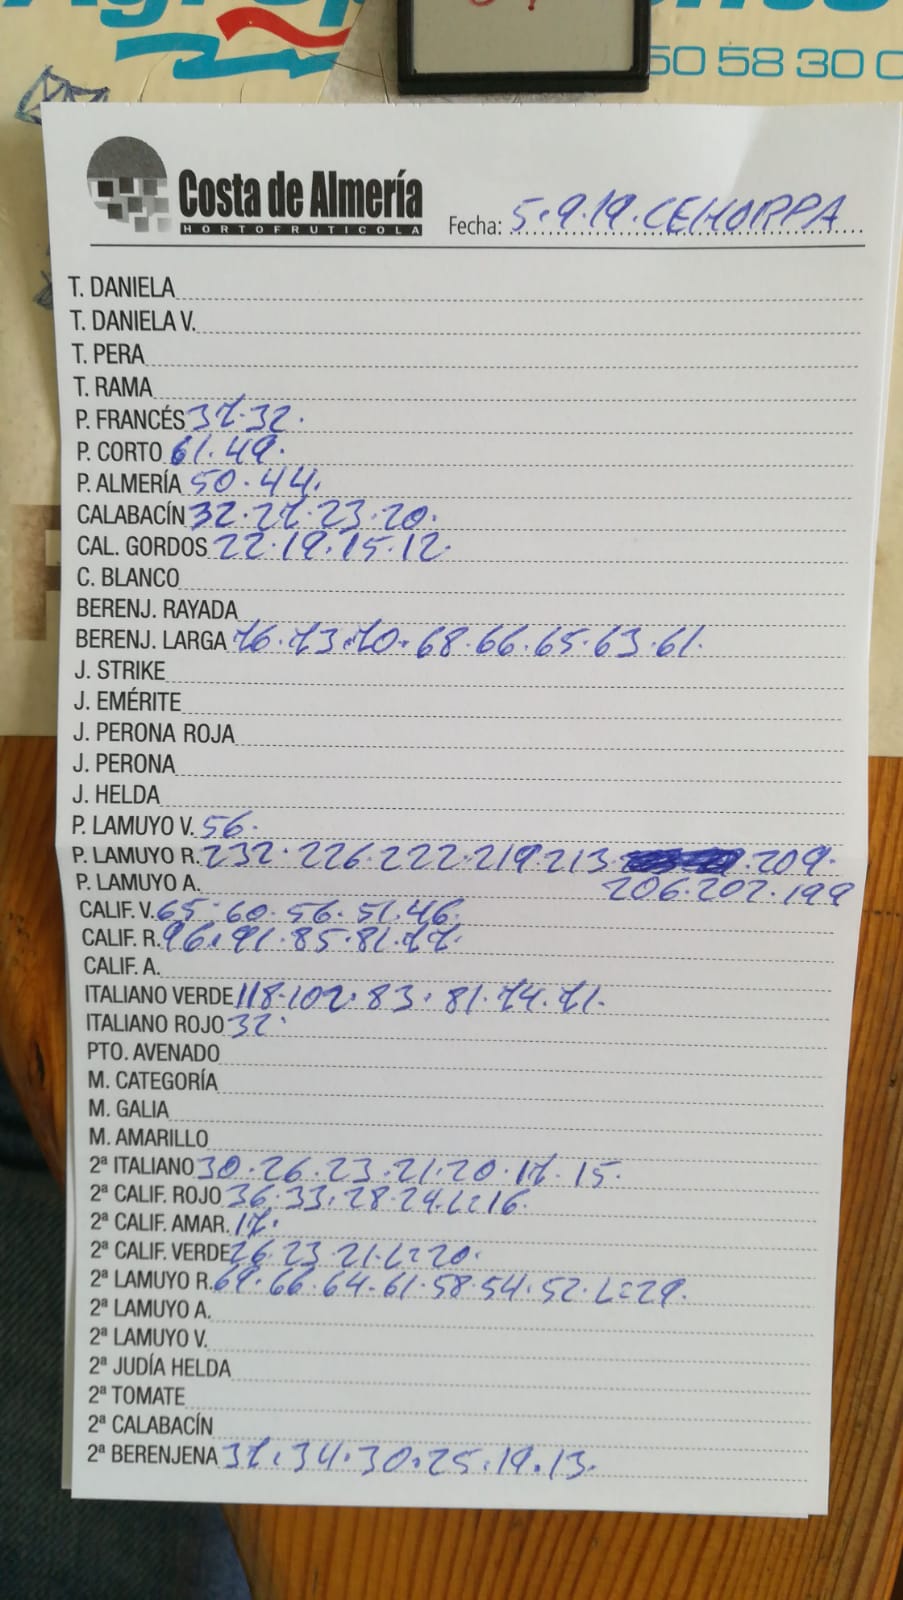 50 58 30 0
Costa de Almería
HORTOFRUTICOLA
Fecha: 5.9.19. CEHORPA
T. DANIELA
T. DANIELA V.
T. PERA
T. RAMA
P. FRANCÉS 37.32.
P. CORTO 61.49.
P. ALMERÍA 50.44.
CALABACÍN 32.27.23.20.
CAL. GORDOS 22.19.15.12.
C. BLANCO
BERENJ. RAYADA
BERENJ. LARGA 76.73.70.68.66.65.63.61.
J. STRIKE
J. EMÉRITE
J. PERONA ROJA
J. PERONA
J. HELDA
P. LAMUYO V. 56.
P. LAMUYO R. 232.226.222.219.213. 209.
P. LAMUYO A. 206.202.199
CALIF. V. 65.60.56.51.46.
CALIF. R. 96.91.85.81.77.
CALIF. A.
ITALIANO VERDE 118.102.83.81.74.71.
ITALIANO ROJO 32.
PTO. AVENADO
M. CATEGORÍA
M. GALIA
M. AMARILLO
2ª ITALIANO 30.26.23.21.20.17.15.
2ª CALIF. ROJO 36.33.28.24.L=16.
2ª CALIF. AMAR. 17.
2ª CALIF. VERDE 26.23.21.L=20.
2ª LAMUYO R. 69.66.64.61.58.54.52.L=29.
2ª LAMUYO A.
2ª LAMUYO V.
2ª JUDÍA HELDA
2ª TOMATE
2ª CALABACÍN
2ª BERENJENA 37.34.30.25.19.13.